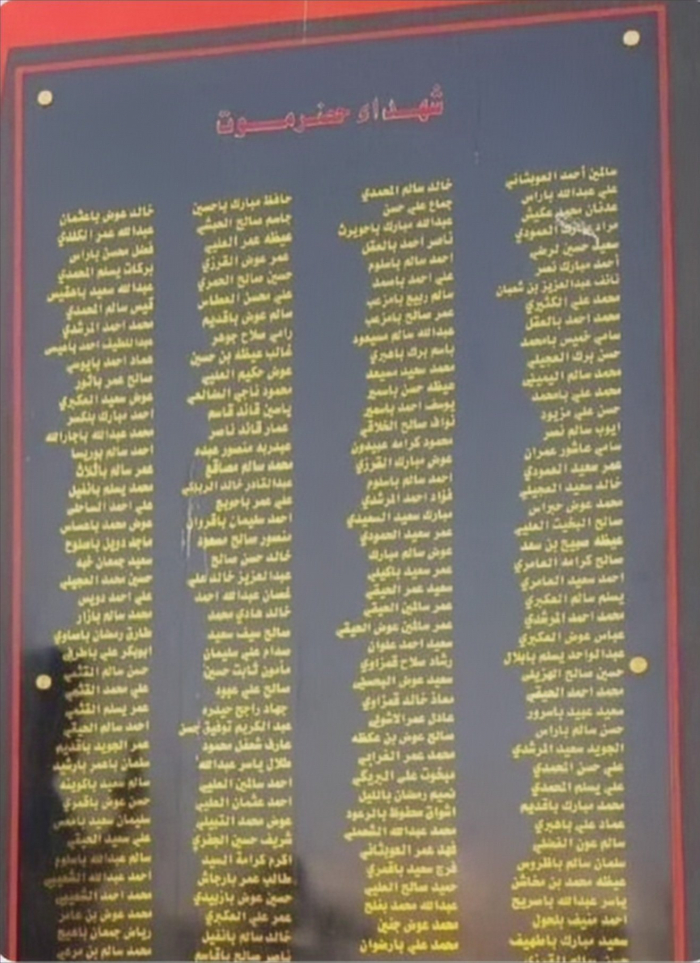 شهداء حضرموت
سالمين أحمد العوبثاني
علي عبدالله باراس
عدنان محمد عكيش
مراد العمودي
سعيد حسين لرضي
أحمد مبارك نسر
نائف عبدالعزيز بن شعبان
محمد علي الكثيري
محمد احمد بالعقل
سامي خميس بامحمد
حسن برك العجيلي
محمد سالم اليميني
محمد علي بامحمد
حسن علي مزيود
ايوب سالم نسر
سامي عاشور عمران
عمر سعيد العمودي
خالد سعيد العجيلي
محمد عوض حبراس
صالح البخيت العليي
عيظه سبيح بن سعد
صالح كرامه العامري
احمد سعيد العامري
يسلم سالم العكبري
محمد احمد المرشدي
عباس عوض العكبري
عبدالواحد يسلم بابلال
حسين صالح الهزيلي
محمد احمد الحيقي
سعيد عبيد باسرور
حسن سالم باراس
الجويد سعيد المرشدي
علي حسن المحمدي
علي يسلم المحمدي
محمد مبارك باقديم
عماد علي باهبري
سالم عون الفضلي
سلمان سالم باقروس
عيظه محمد بن مخاشن
ياسر عبدالله باسريح
احمد منيف بلحول
سعيد مبارك باطهيف
خالد سالم المحمدي
جماع علي حسن
عبدالله مبارك باحويرث
ناصر احمد بالعقل
احمد سالم باسلوم
علي احمد باسمد
سالم ربيع بامزعب
عمر صالح بامزعب
عبدالله سالم سيمعود
باسم برك باهبري
محمد سعيد سيمعد
عيظه حسن باسمير
يوسف احمد باسمير
نواف صالح الخلاقي
محمود كرامه عبيدون
عوض مبارك القرزي
احمد سالم باسلوم
فؤاد احمد المرشدي
مبارك سعيد السعيدي
عمر سعيد العمودي
عوض سالم مبارك
عمر سعيد باكيلي
سعيد عمر الحيقي
عمر سالمين الحيقي
عمر سالمين عوض الحيقي
سعيد احمد علوان
رشاد سلاح قمزاوي
سعيد عوض البحسين
معاذ خالد قمزاوي
عادل عمر الاشولي
صالح عوض بن عكظه
محمد عمر الغرابي
مبخوت علي البريكي
نميم رمضان بالليل
اشواق محفوظ بالرعود
محمد عبدالله الشملي
فهد عمر العوبثاني
فرج سعيد باقمري
حميد صالح العليي
عبدالله محمد بفلح
محمد عوض جنين
محمد علي بارضوان
حافظ مبارك باحسين
جاسم صالح الحيقي
عيظه عمر العليي
عمر عوض القرزي
حسين صالح الحمري
علي محسن العطاس
سالم عوض باقديم
رامي سلاح جوهر
غالب عيظه بن حسين
عوض حكيم العليي
محمود ناجي الضالعي
ياسين قائد قاسم
عمار قائد ناصر
عبدربه منصور عبده
محمد سالم مصاقع
عبدالقادر خالد الرباكي
علي عمر باجويع
احمد سليمان باقروان
منصور صالح مسعود
خالد حسن صالح
عبدالعزيز خالد علي
غسان عبدالله احمد
خالد هادي محمد
صالح سيف سعيد
صدام علي سليمان
مأمون ثابت حسين
صالح علي عبود
جهاد راجح حيدره
عبد الكريم توفيق حسن
عارف شعفل محمود
طلال ياسر عبدالله
احمد سالمين العليي
احمد عثمان العليي
عوض محمد القبيلي
شريف حسين الجفري
اكرم كرامة السيد
طالب عمر بارجاش
حسين عوض بازبيدي
عمر علي العكبري
خالد سالم بانخيل
ناصر صالح باقاسم
خالد عوض باعثمان
عبدالله عمر الكلدي
فضل محسن باراس
بركات يسلم المحمدي
عبدالله سعيد باعقيس
قيس سالم المحمدي
محمد احمد المرشدي
عبداللطيف احمد باعيس
عماد احمد بايوسي
صالح عمر باثور
عوض سعيد العكبري
احمد مبارك بلكسر
محمد عبدالله باجارالله
احمد سالم بوريسا
عمر سالم بالثلاث
محمد يسلم بانخيل
علي احمد الساحلي
عوض محمد باعساس
ماجد دويل باصلوح
سعيد جمعان خبه
حسين محمد العجيلي
علي احمد دويس
محمد سالم بازار
طارق رمضان باصاوي
ابوبكر علي باطرفي
حسن سالم القثمي
علي محمد القثمي
عمر يسلم القثمي
احمد سالم الحيقي
عمر الجويد باقديم
سلمان ياعمر بارشيد
سالم سعيد باكوينه
حسن عوض باقمزي
سليمان سعيد باعيس
علي سعيد الحيقي
سالم عبدالله باسلوم
احمد عبدالله الشعيبي
محمد احمد الشعيبي
محمد عوض بن عامر
رياض جمعان باعيج
محمد سالم بن مرعي